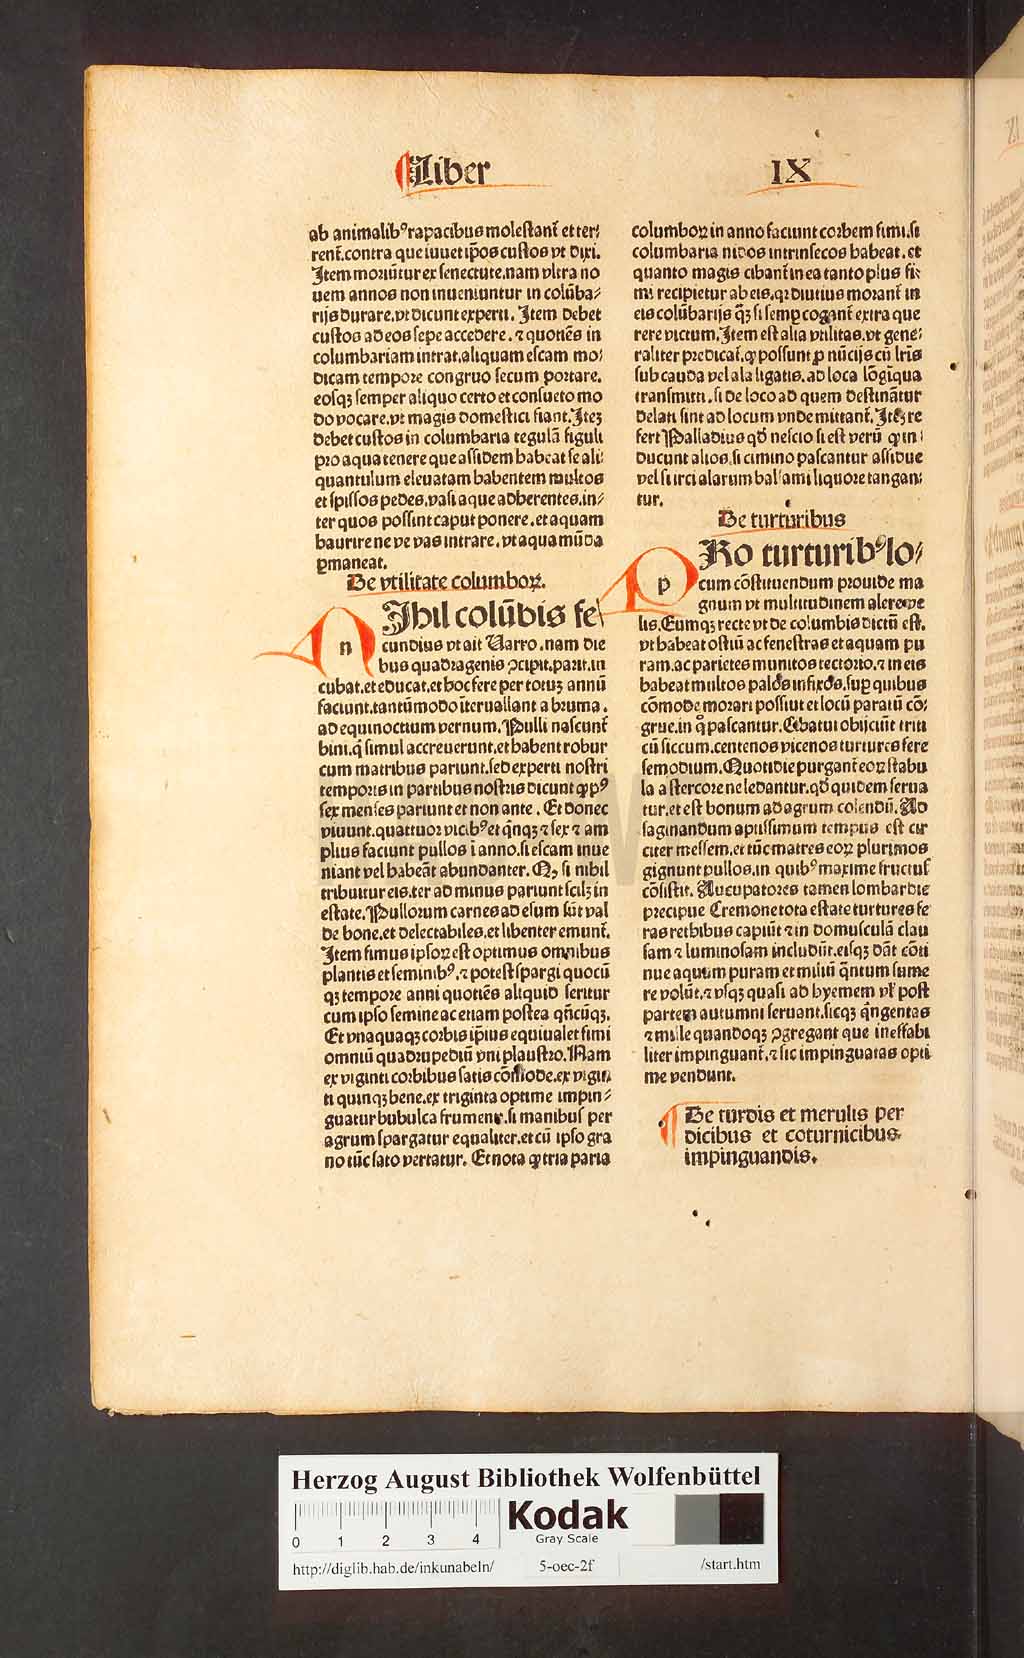 Liber
IX
ab animalibꝰ rapacibus molestant̄ et ter⸗
rent̄. contra que iuuet ip̄os custos vt dixi.
Item moriūtur ex senectute. nam vltra no
uem annos non inueniuntur in colūba⸗
rijs durare. vt dicunt experti. Item debet
custos ad eos sepe accedere. ⁊ quotiēs in
columbariam intrat. aliquam escam mo⸗
dicam tempore congruo secum portare.
eosqꝫ semper aliquo certo et consueto mo
do vocare. vt magis domestici fiant. Iteꝫ
debet custos in columbaria tegulā figuli
pro aqua tenere que assidem habeat se ali⸗
quantulum eleuatam habentem multos
et spissos pedes. vasi aque adherentes. in⸗
ter quos possint caput ponere. et aquam
haurire ne de vas intrare. vt aqua mūda
ꝑmaneat.
De vtilitate columboꝝ.
n Ihil colūbis fe
cundius vt ait Varro. nam die
bus quadragenis ꝯcipit. parit. in
cubat. et educat. et hoc fere per totuꝫ annū
faciunt. tantūmodo īteruallant a bruma.
ad equinoctium vernum. Pulli nascunt̄
bini. q̄ simul accreuerunt. et habent robur
cum matribus pariunt. sed experti nostri
temporis in partibus nostris dicunt ꝙ pꝰ
sex menses pariunt et non ante. Et donec
viuunt. quattuor vicibꝰ et qͥnqꝫ ⁊ sex ⁊ am
plius faciunt pullos ī anno. si escam inue
niant vel habeāt abundanter. Qꝫ si nihil
tribuitur eis. ter ad minus pariunt scilꝫ in
estate. Pullorum carnes ad esum sūt val
de bone. et delectabiles. et libenter emunt̄.
Item fimus ipsoꝝ est optimus omnibus
plantis et seminibꝰ. ⁊ potest spargi quocū
qꝫ tempore anni quotiēs aliquid seritur
cum ipso semine ac etiam postea qn̄cūqꝫ.
Et vnaquaqꝫ corbis ip̄ius equiualet fimi
omniū quadrupediū vni plaustro. Nam
ex viginti corbibus satis cōmode. ex vigin
ti quinqꝫ bene. ex triginta optime impin⸗
guatur bubulca frumenti. si manibus per
agrum spargatur equaliter. et cū ipso gra
no tūc sato vertatur. Et nota ꝙ tria paria
columboꝝ in anno faciunt corbem fimi. si
columbaria nidos intrinsecos habeat. et
quanto magis cibant̄ in ea tanto plus fi⸗
mi recipietur ab eis. qꝛ diutius morant̄ in
eis colūbarijs qͣꝫ si semꝑ cogant̄ extra que
rere victum. Item est alia vtilitas. vt gene⸗
raliter predicat̄. ꝙ possunt ꝓ nūcijs cū lr̄is
sub cauda vel ala ligatis. ad loca lōgīqua
transmitti. si de loco ad quem destināntur
delati sint ad locum vnde mittant̄. Iteꝫ re
fert Palladius qd̄ nescio si est verū ꝙ in⸗
ducunt alios. si cimino pascantur assidue
vel si irci alarum balsami liquore tangan⸗
tur.
De turturibus
p Ro turturibꝰ lo⸗
cum cōstituendum prouide ma
gnum vt multitudinem alere ve
lis. Eumqꝫ recte vt de columbis dictū est.
vt habeat ostiū ac fenestras et aquam pu
ram. ac parietes munitos tectorio. ⁊ in eis
habeat multos palos infixos. suꝑ quibus
cōmode morari possint et locū paratū cō⸗
grue. in q̊ pascantur. Cibatui obijciūt triti
cū siccum. centenos vicenos turtures fere
semodium. Quotidie purgant̄ eoꝝ stabu
la a stercore ne ledantur. qd̄ quidem serua
tur. et est bonum ad agrum colendū. Ad
saginandum aptissimum tempus est cir
citer messem. et tūc matres eoꝝ plurimos
gignunt pullos. in quibꝰ maxime fructus
cōsistit. Aucupatores tamen lombardie
precipue Cremone tota estate turtures fe
ras rethibus capiūt ⁊ in domusculā clau
sam ⁊ luminosam includūt. eisqꝫ dāt cōti
nue aquam puram et miliū qͣntum sume
re volūt. ⁊ vsqꝫ quasi ad hyemem vl̓ post
partem autumni seruant. sicqꝫ qͥngentas
⁊ mille quandoqꝫ ꝯgregant que ineffabi
liter impinguant̄. ⁊ sic impinguatas opti
me vendunt.
De turdis et merulis per
dicibus et coturnicibus
impinguandis.
Herzog August Bibliothek Wolfenbüttel
0 1 2 3 4
Kodak
Gray Scale
http://diglib.hab.de/inkunabeln/ 5-oec-2f /start.htm